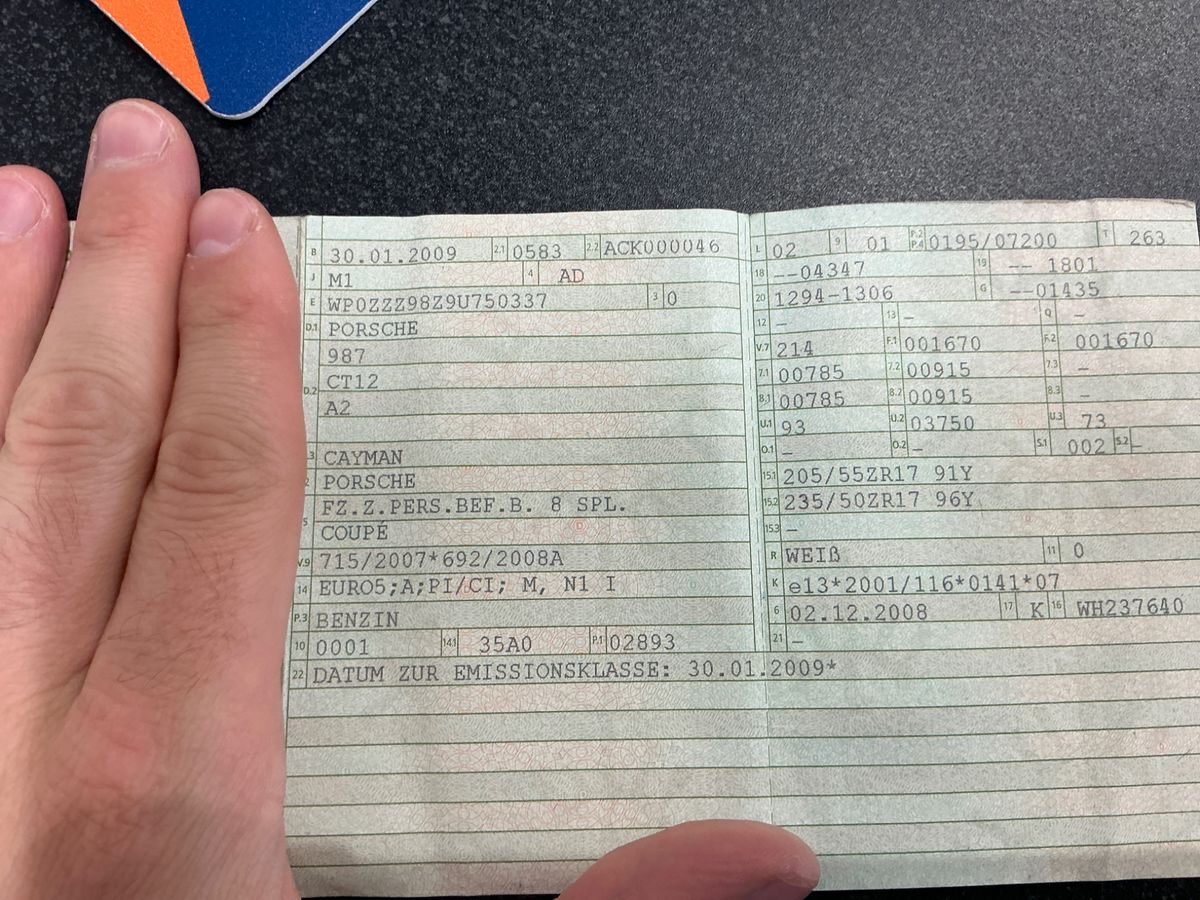 B 30.01.2009 2.1 0583 2.2 ACK000046
J M1 4 AD
E WP0ZZZ98Z9U750337 3 0
D.1 PORSCHE
987
D.2 CT12
A2
3 CAYMAN
2 PORSCHE
FZ.Z.PERS.BEF.B. 8 SPL.
5 COUPÉ
V.9 715/2007*692/2008A
14 EURO5;A;PI/CI; M, N1 I
P.3 BENZIN
10 0001 14.1 35A0 P.1 02893
22 DATUM ZUR EMISSIONSKLASSE: 30.01.2009*
L 02 9 01 P.2 P.4 0195/07200 T 263
18 --04347 19 -- 1801
20 1294-1306 G --01435
12 - 13 - Q -
V.7 214 F.1 001670 F.2 001670
7.1 00785 7.2 00915 7.3 -
8.1 00785 8.2 00915 8.3 -
U.1 93 U.2 03750 U.3 73
O.1 - O.2 - S.1 002 S.2 -
15.1 205/55ZR17 91Y
15.2 235/50ZR17 96Y
15.3 -
R WEIß 11 0
K e13*2001/116*0141*07
6 02.12.2008 17 K 16 WH237640
21 -